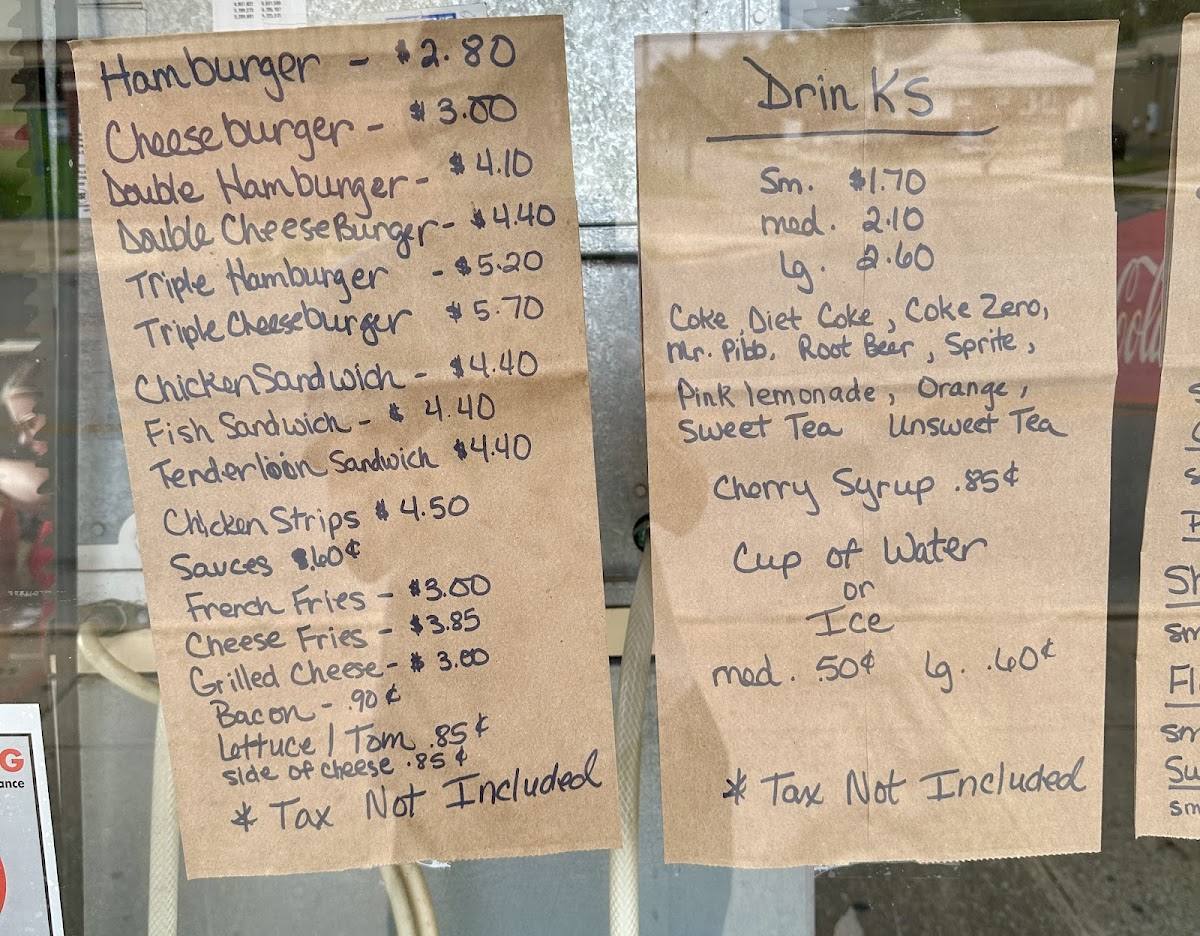 Hamburger - $2.80
Cheeseburger - $3.00
Double Hamburger - $4.10
Double CheeseBurger - $4.40
Triple Hamburger - $5.20
Triple Cheeseburger $5.70
Chicken Sandwich - $4.40
Fish Sandwich - $4.40
Tenderloin Sandwich $4.40
Chicken Strips $4.50
Sauces $.60¢
French Fries - $3.00
Cheese Fries - $3.85
Grilled Cheese - $3.00
Bacon - .90¢
Lettuce / Tom .85¢
side of cheese .85¢
* Tax Not Included
Drinks
Sm. $1.70
med. 2.10
lg. 2.60
Coke, Diet Coke, Coke Zero,
Mr. Pibb, Root Beer, Sprite,
Pink lemonade, Orange,
Sweet Tea Unsweet Tea
Cherry Syrup .85¢
Cup of Water
or
Ice
med. .50¢ lg. .60¢
* Tax Not Included
Sh
sm
Fl
sm
Su
sm
G
ance